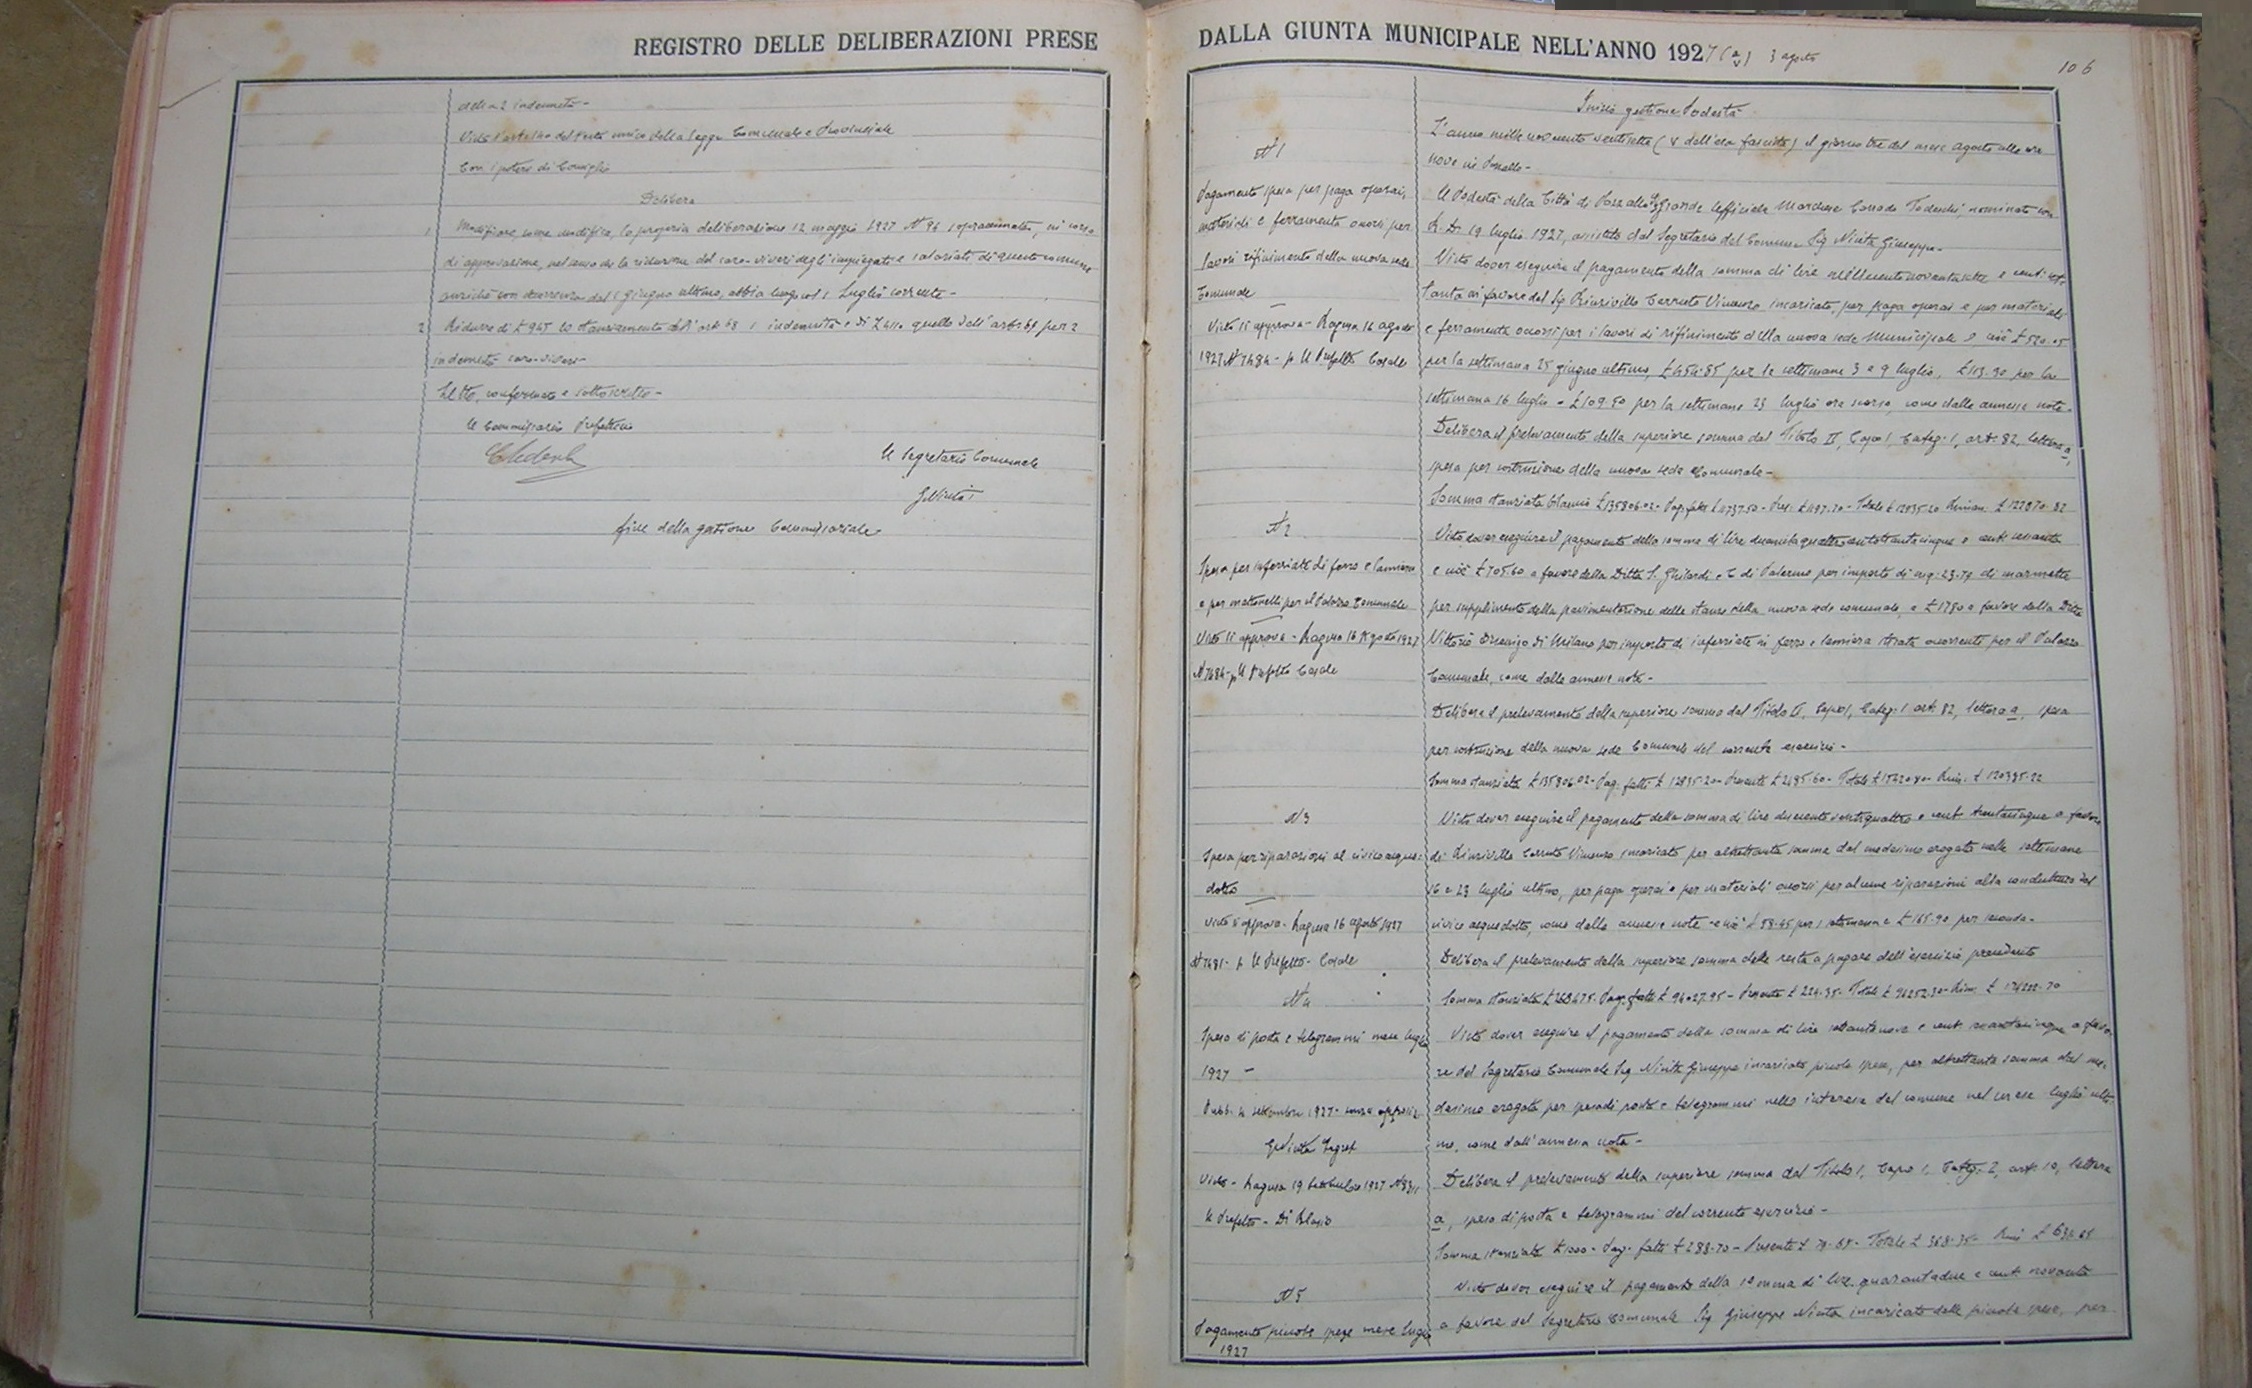 REGISTRO DELLE DELIBERAZIONI PRESE
della 2 indennità -
Visto l'art. del testo unico della legge Comunale e Provinciale
Con i poteri di Consiglio
Delibera
1 Modificare, come modifica, la propria deliberazione 12 maggio 1927 N 96 sopracennata, in corso
di approvazione, nel senso che la riduzione del caro-viveri degli impiegati e salariati di questo comune
anzichè con decorrenza dal 1 giugno ultimo, abbia luogo col 1 Luglio corrente -
2 Ridurre di £ 945 lo stanziamento dell'art. 1 indennità e di quello dell'art. per 2
indennità caro-viveri -
Letto, confermato e sottoscritto -
Il Commissario Prefettizio
Il Segretario Comunale
GNinità
fine della gestione Commissariale
DALLA GIUNTA MUNICIPALE NELL'ANNO 1927 (a V) 3 agosto
106
Inizio gestione Podestà
L'anno mille novecento ventisette (V dell'era fascista) il giorno tre del mese agosto alle ore
nove in Pozzallo -
Il Podestà della Città di Pozzallo Grande Ufficiale Marchese Corrado Tedeschi nominato con
R. D. 19 luglio 1927, assistito dal Segretario del Comune Sig Ninità Giuseppe -
N 1
Pagamento spesa per paga operai,
materiali e ferramenta occorsi per
lavori rifinimento della nuova sede
Comunale
Visto si approva - Ragusa 16 agosto
1927 N 7484 - p. Il Prefetto Casale
Visto dover eseguire il pagamento della somma di lire millecentonovantasette e cent. set-
tanta in favore del Sig Vincenzo incaricato, per paga operai e per materiali
e ferramenta occorsi per i lavori di rifinimento della nuova sede Municipale e cioè £ 520.05
per la settimana 25 giugno ultimo, £ 454.85 per le settimane 3 e 9 luglio, £ 113.30 per la
settimana 16 luglio e £ 109.50 per la settimana 23 luglio ora scorso, come dalle annesse note.
Delibera il prelevamento della superiore somma dal Titolo II, Capo 1, Categ: 1, art: 82, lettera a,
spesa per costruzione della nuova sede Comunale -
Somma stanziata bilancio £ 135806.02 - Pag. fatti £ 11737.50 - Pres. £ 1197.70 - Totale £ 12935.20 Riman. £ 122870.82
N 2
Spesa per inferriate di ferro e lamiera
e per mattonelle per il Palazzo Comunale
Visto si approva - Ragusa 16 Agosto 1927
N 7484 - p Il Prefetto Casale
Visto dover eseguire il pagamento della somma di lire duemilaquattrocentottantacinque e cent. sessanta
e cioè £ 705.60 a favore della Ditta S. Ghilardi e C di Palermo per importo di mq. 23.79 di marmette
per supplimento della pavimentazione delle stanze della nuova sede comunale, e £ 1780 a favore della Ditta
Vittorio Arcenigo di Milano per importo di inferriate in ferro e lamiera stirata occorrenti per il Palazzo
Comunale, come dalle annesse note -
Delibera il prelevamento della superiore somma dal Titolo II, Capo 1, Categ: 1 art: 82, lettera a, spesa
per costruzione della nuova sede Comunale del corrente esercizio -
Somma stanziata £ 135806.02 - Pag. fatti £ 12935.20 - Presente £ 2485.60 - Totale £ 15420.80 - Rim. £ 120385.22
N 3
Spesa per riparazioni al civico acque-
dotto
Visto si approva - Ragusa 16 agosto 1927
N 7481 - p Il Prefetto - Casale
Visto dover eseguire il pagamento della somma di lire duecento ventiquattro e cent. trentacinque a favore
di Vincenzo incaricato per altrettanta somma dal medesimo erogata nelle settimane
16 e 23 luglio ultimo, per paga operai e per materiali occorsi per alcune riparazioni alla conduttura del
civico acquedotto, come dalle annesse note e cioè £ 58.45 per 1 settimana e £ 165.90 per seconda -
Delibera il prelevamento della superiore somma dalle resta a pagare dell'esercizio precedente
Somma stanziata £ 268475 - Pag. fatti £ 94027.95 - Presente £ 224.35 - Totale £ 94252.30 - Rim. £ 174222.70
N 4
Spese di posta e telegrammi mese luglio
1927 -
Pubb. 4 settembre 1927 - senza opposiz.
GNinità Segret
Visto - Ragusa 19 Settembre 1927 N 8311
Il Prefetto - Di Blasio
Visto dover eseguire il pagamento della somma di lire settantanove e cent. sessantacinque a favo-
re del Segretario Comunale Sig Ninità Giuseppe incaricato piccole spese, per altrettanta somma dal me-
desimo erogata per spese di posta e telegrammi nello interesse del comune nel mese luglio ulti-
mo, come dall'annessa nota -
Delibera il prelevamento della superiore somma dal Titolo 1, Capo 1, Categ: 2, art: 10, lettera
a, spese di posta e telegrammi del corrente esercizio -
Somma stanziata £ 1000 - Pag. fatti £ 288.70 - Presente £ 79.65 - Totale £ 368.35 - Rim £ 631.65
N 5
Pagamento piccole spese mese luglio
1927
Visto dover eseguire il pagamento della somma di lire quarantadue e cent. novanta
a favore del Segretario Comunale Sig Giuseppe Ninità incaricato delle piccole spese, per